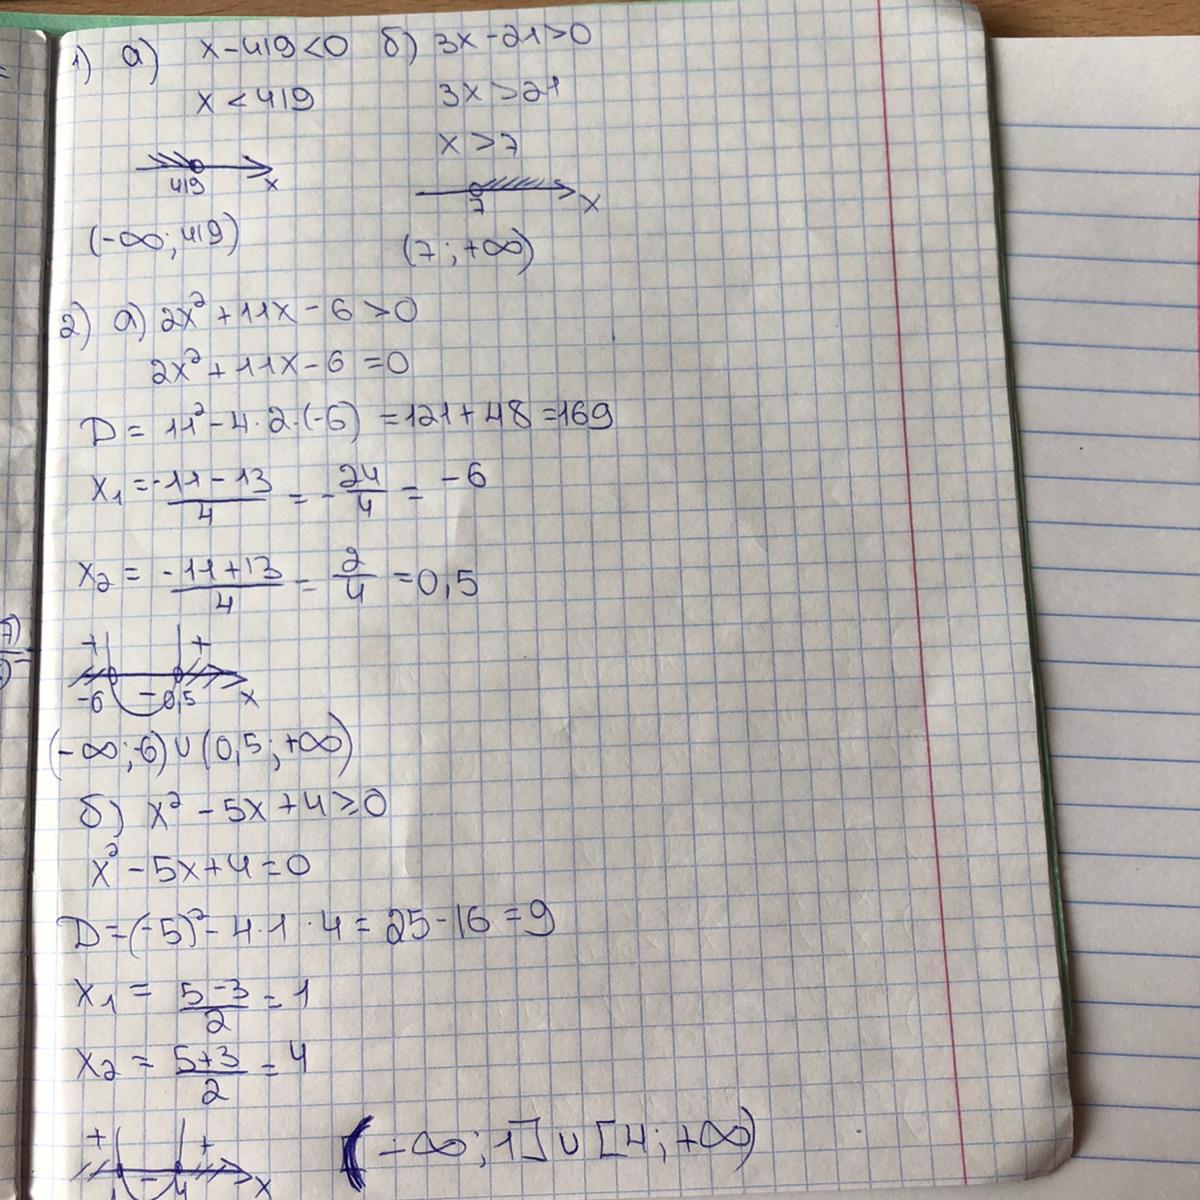 1) а) x-419<0 б) 3x-21>0
x<419 3x>21
x>7
419 x
7 x
(-∞; 419) (7; +∞)
2) а) 2x²+11x-6>0
2x²+11x-6=0
D=11²-4·2·(-6)=121+48=169
x₁=-11-13/4=-24/4=-6
x₂=-11+13/4=2/4=0,5
+ +
-6 - 0,5 x
(-∞;-6)∪(0,5;+∞)
б) x²-5x+4≥0
x²-5x+4=0
D=(-5)²-4·1·4=25-16=9
x₁=5-3/2=1
x₂=5+3/2=4
+ + (-∞;1]∪[4;+∞)
1 - 4 x